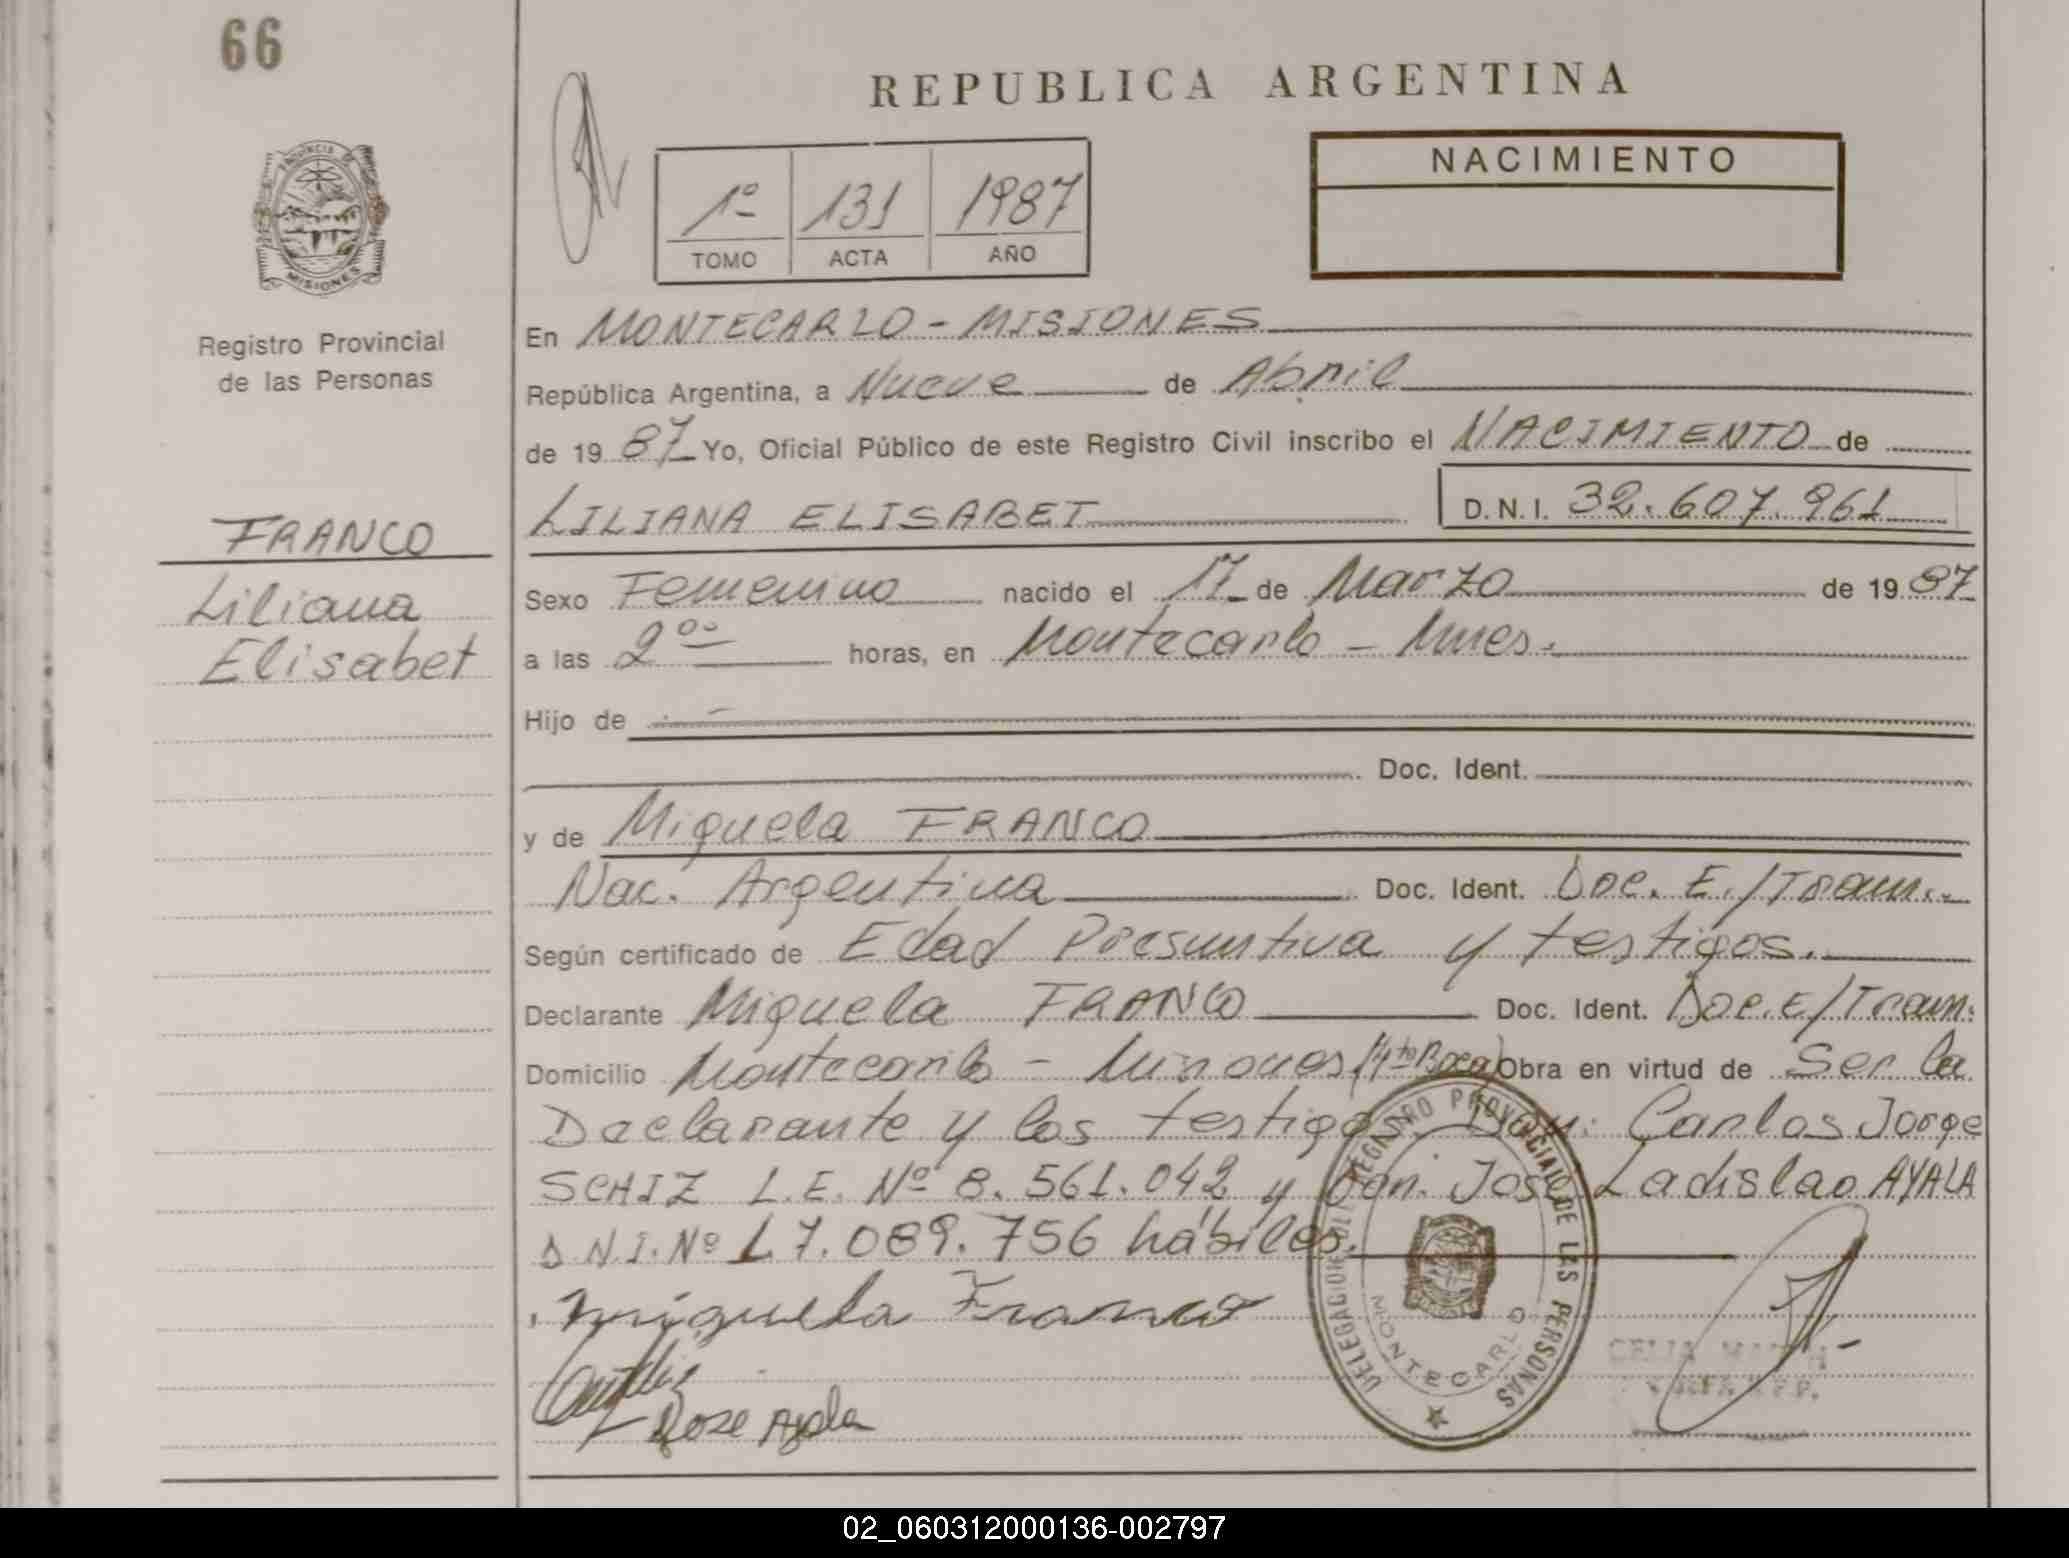 66
REPUBLICA ARGENTINA
PROVINCIA DE
MISIONES
1º 131 1987
TOMO ACTA AÑO
NACIMIENTO
Registro Provincial
de las Personas
FRANCO
Liliana
Elisabet
En MONTECARLO - MISIONES
República Argentina, a Nueve de Abril
de 1987 Yo, Oficial Público de este Registro Civil inscribo el NACIMIENTO de
LILIANA ELISABET D.N.I. 32.607.961
Sexo Femenino nacido el 17 de Marzo de 1987
a las 2 00 horas, en Montecarlo - Mnes.
Hijo de
Doc. Ident.
y de Miguela FRANCO
Nac. Argentina Doc. Ident. Doc. E./Tram.
Según certificado de Edad Presuntiva y testigos.
Declarante Miguela FRANCO Doc. Ident. Doc. E/Tram.
Domicilio Montecarlo - Misiones Obra en virtud de Ser la
Declarante y los testigos Carlos Jorge
SCHIZ L.E. Nº 8.561.042 y Don. José Ladislao AYALA
D.N.I. Nº 17.089.756 hábiles.
Miguela Franco
Jose Ayala
DELEGACION DEL REGISTRO PROVINCIAL DE LAS PERSONAS
MONTECARLO
CELIA
02_060312000136-002797